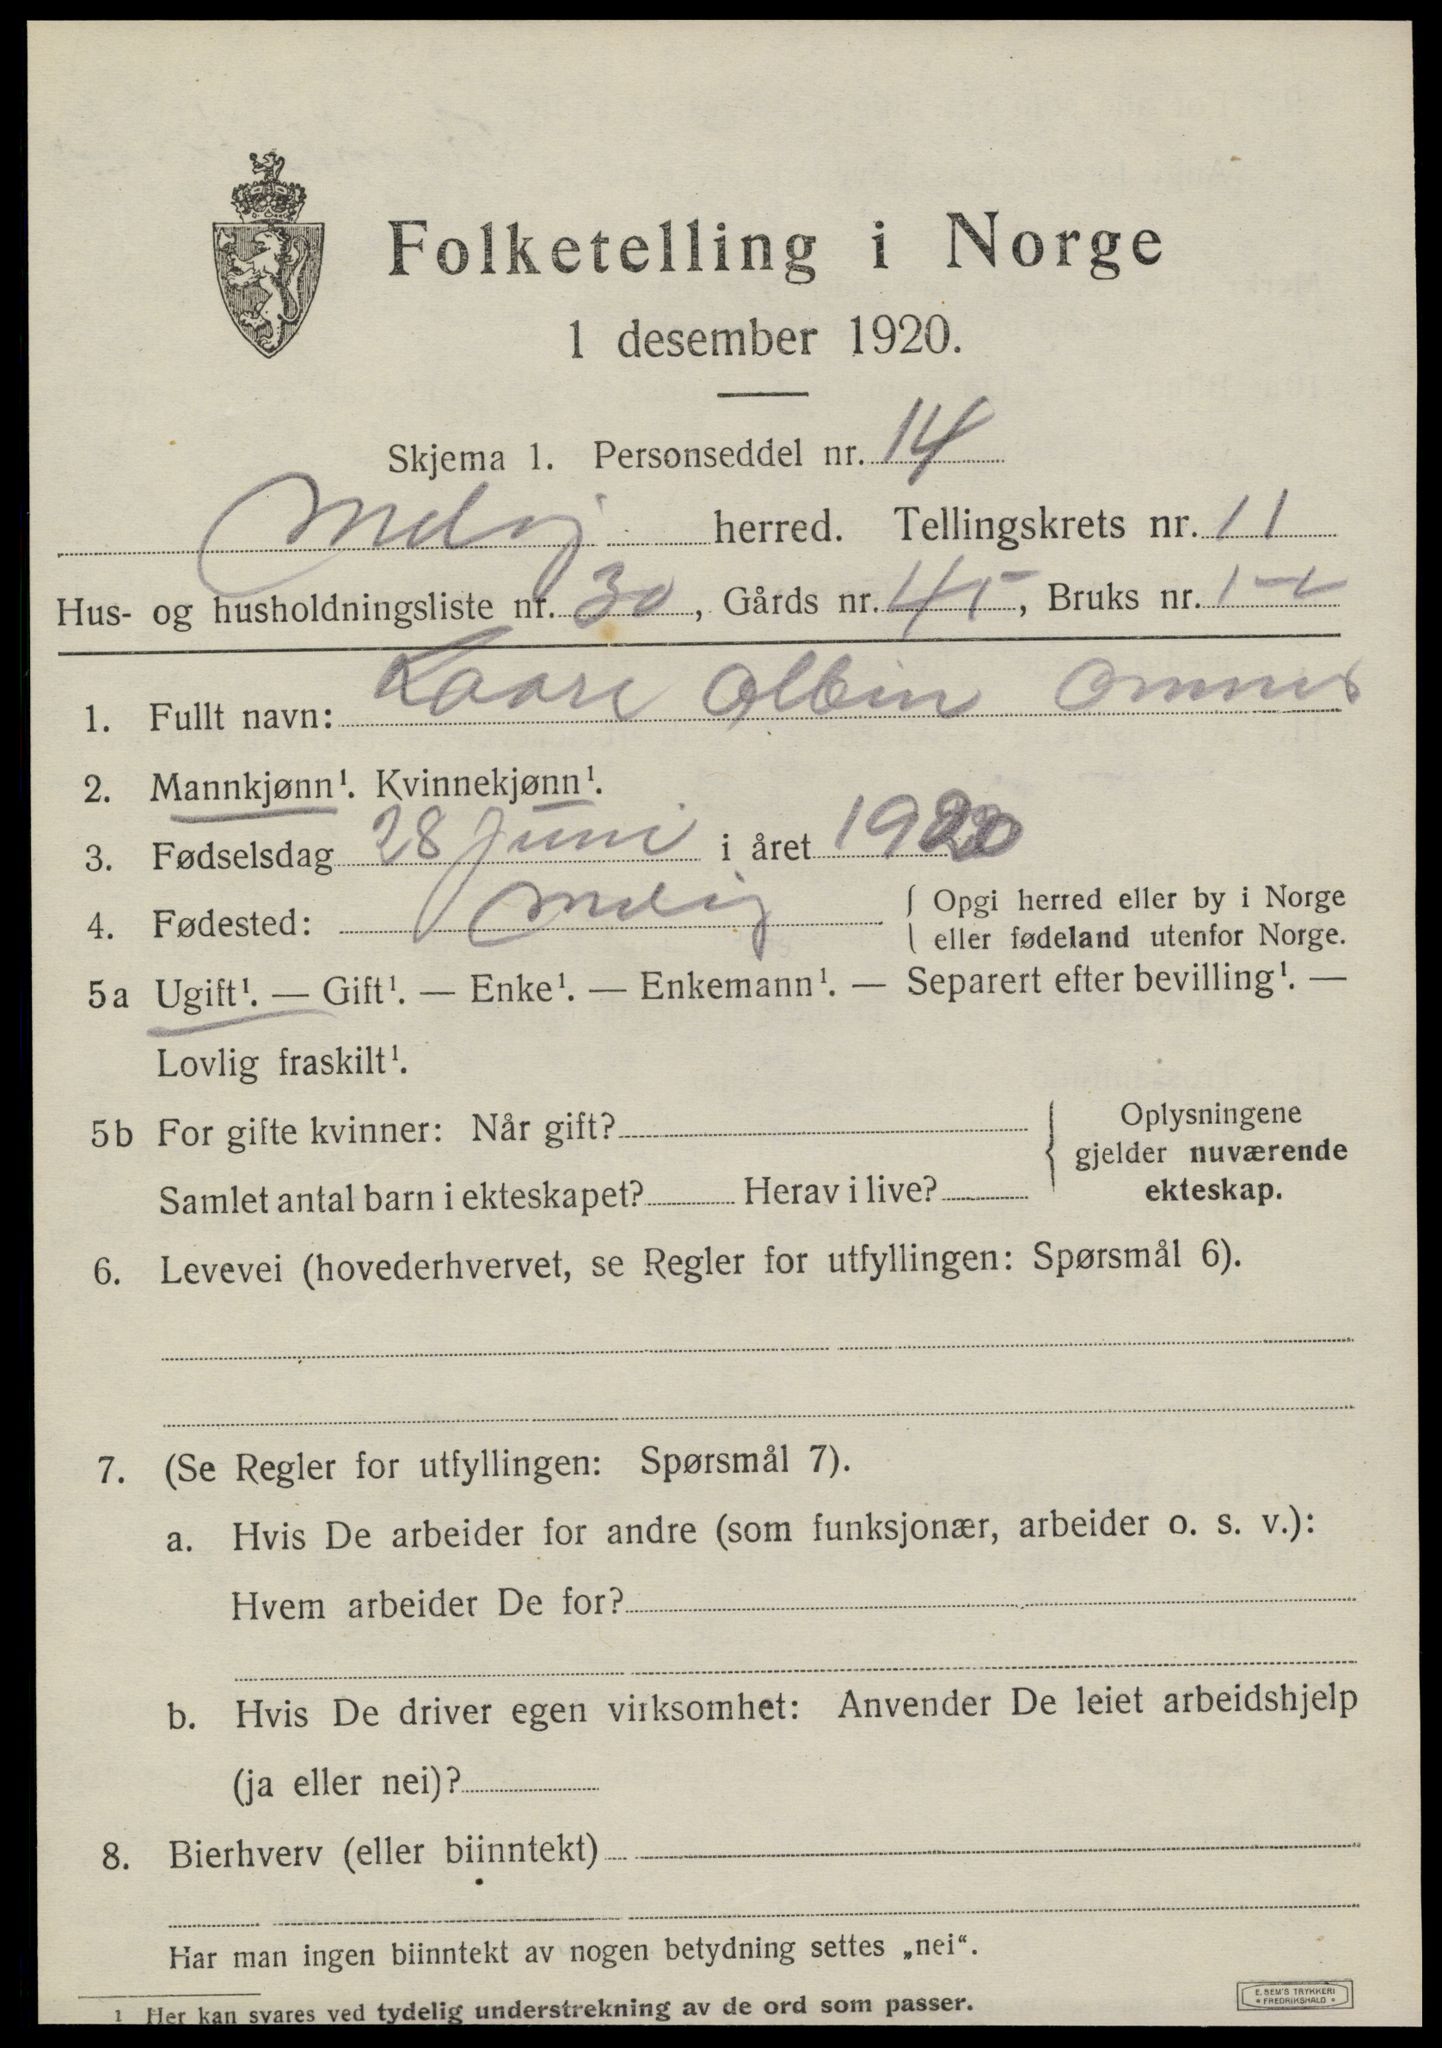 Folketelling i Norge
1 desember 1920.
Skjema 1. Personseddel nr. 14
herred. Tellingskrets nr. 11
Hus- og husholdningsliste nr. 30, Gårds nr. 45, Bruks nr.
1. Fullt navn: Kaare Albin
2. Mannkjønn¹. Kvinnekjønn¹.
3. Fødselsdag 28 Juni i året 1920
4. Fødested: { Opgi herred eller by i Norge
eller fødeland utenfor Norge.
5a Ugift¹. — Gift¹. — Enke¹. — Enkemann¹. — Separert efter bevilling¹. —
Lovlig fraskilt¹.
5b For gifte kvinner: Når gift? { Oplysningene
gjelder nuværende
Samlet antal barn i ekteskapet? Herav i live? ekteskap.
6. Levevei (hovederhvervet, se Regler for utfyllingen: Spørsmål 6).
7. (Se Regler for utfyllingen: Spørsmål 7).
a. Hvis De arbeider for andre (som funksjonær, arbeider o. s. v.):
Hvem arbeider De for?
b. Hvis De driver egen virksomhet: Anvender De leiet arbeidshjelp
(ja eller nei)?
8. Bierhverv (eller biinntekt)
Har man ingen biinntekt av nogen betydning settes „nei“.
¹ Her kan svares ved tydelig understrekning av de ord som passer.
E. SEM'S TRYKKERI
* FREDRIKSHALD *